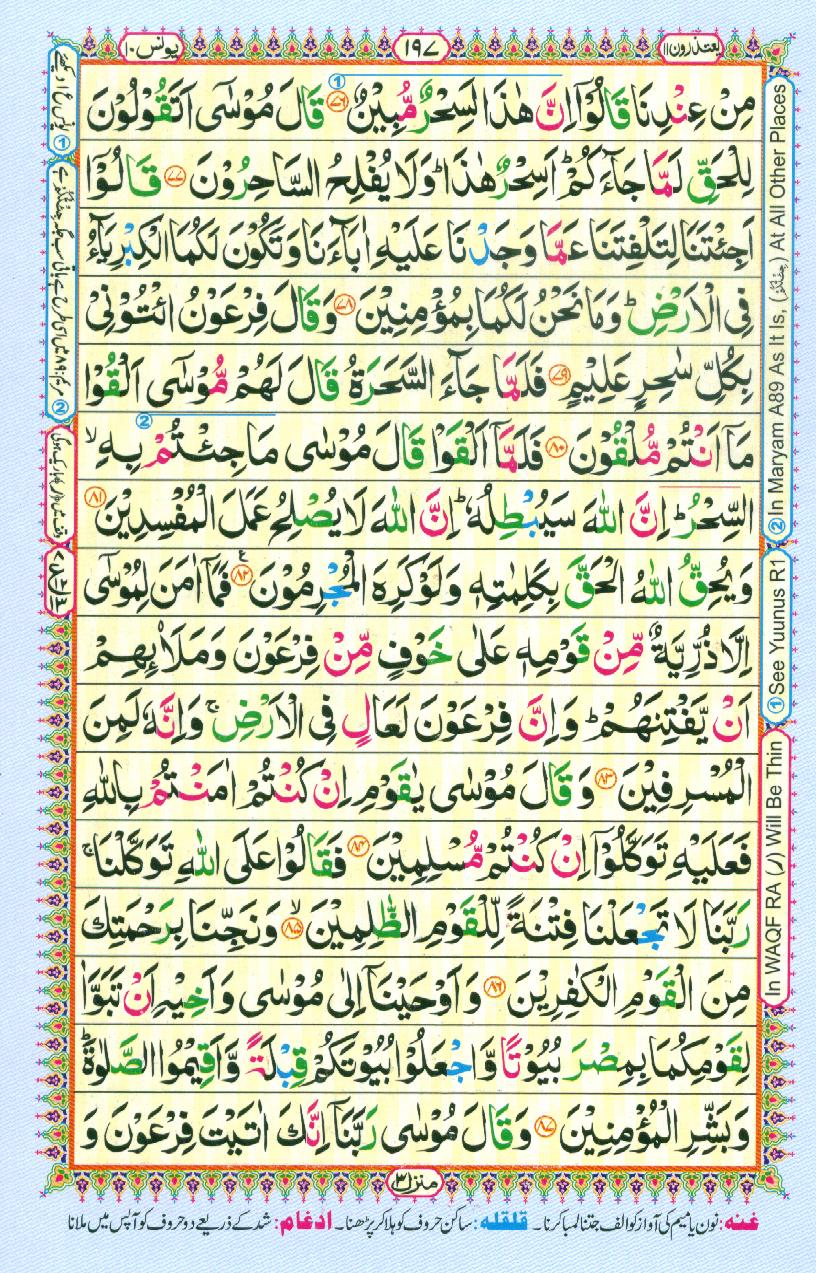 یعتذرون ۱۱
۱۹۷
یونس ۱۰
مِنْ عِنْدِنَا قَالُوْۤا اِنَّ هٰذَا لَسِحْرٌ مُّبِیْنٌ ۝۷۶ قَالَ مُوْسٰۤی اَتَقُوْلُوْنَ
لِلْحَقِّ لَمَّا جَآءَكُمْ ؕ اَسِحْرٌ هٰذَا ؕ وَلَا یُفْلِحُ السَّاحِرُوْنَ ۝۷۷ قَالُوْۤا
اَجِئْتَنَا لِتَلْفِتَنَا عَمَّا وَجَدْنَا عَلَیْهِ اٰبَآءَنَا وَتَكُوْنَ لَكُمَا الْكِبْرِیَآءُ
فِی الْاَرْضِ ؕ وَمَا نَحْنُ لَكُمَا بِمُؤْمِنِیْنَ ۝۷۸ وَقَالَ فِرْعَوْنُ ائْتُوْنِیْ
بِكُلِّ سٰحِرٍ عَلِیْمٍ ۝۷۹ فَلَمَّا جَآءَ السَّحَرَةُ قَالَ لَهُمْ مُّوْسٰۤی اَلْقُوْا
مَاۤ اَنْتُمْ مُّلْقُوْنَ ۝۸۰ فَلَمَّاۤ اَلْقَوْا قَالَ مُوْسٰی مَا جِئْتُمْ بِهِ ۙ
السِّحْرُ ؕ اِنَّ اللّٰهَ سَیُبْطِلُهٗ ؕ اِنَّ اللّٰهَ لَا یُصْلِحُ عَمَلَ الْمُفْسِدِیْنَ ۝۸۱
وَیُحِقُّ اللّٰهُ الْحَقَّ بِكَلِمٰتِهٖ وَلَوْ كَرِهَ الْمُجْرِمُوْنَ ۝۸۲ فَمَاۤ اٰمَنَ لِمُوْسٰۤی
اِلَّا ذُرِّیَّةٌ مِّنْ قَوْمِهٖ عَلٰی خَوْفٍ مِّنْ فِرْعَوْنَ وَمَلَا۟ئِهِمْ
اَنْ یَّفْتِنَهُمْ ؕ وَاِنَّ فِرْعَوْنَ لَعَالٍ فِی الْاَرْضِ ۚ وَاِنَّهٗ لَمِنَ
الْمُسْرِفِیْنَ ۝۸۳ وَقَالَ مُوْسٰی یٰقَوْمِ اِنْ كُنْتُمْ اٰمَنْتُمْ بِاللّٰهِ
فَعَلَیْهِ تَوَكَّلُوْۤا اِنْ كُنْتُمْ مُّسْلِمِیْنَ ۝۸۴ فَقَالُوْا عَلَی اللّٰهِ تَوَكَّلْنَا ۚ
رَبَّنَا لَا تَجْعَلْنَا فِتْنَةً لِّلْقَوْمِ الظّٰلِمِیْنَ ۙ ۝۸۵ وَنَجِّنَا بِرَحْمَتِكَ
مِنَ الْقَوْمِ الْكٰفِرِیْنَ ۝۸۶ وَاَوْحَیْنَاۤ اِلٰی مُوْسٰی وَاَخِیْهِ اَنْ تَبَوَّاٰ
لِقَوْمِكُمَا بِمِصْرَ بُیُوْتًا وَّاجْعَلُوْا بُیُوْتَكُمْ قِبْلَةً وَّاَقِیْمُوا الصَّلٰوةَ ؕ
وَبَشِّرِ الْمُؤْمِنِیْنَ ۝۸۷ وَقَالَ مُوْسٰی رَبَّنَاۤ اِنَّكَ اٰتَیْتَ فِرْعَوْنَ وَ
منزل ۳
① See Yuunus R1 ② In Maryam A89 As It Is, (جِئْتُمْ) At All Other Places
In WAQF RA (ر) Will Be Thin
غنہ: نون یا میم کی آواز کو الف جتنا لمبا کرنا۔ قلقلہ: ساکن حروف کو ہلا کر پڑھنا۔ ادغام: شد کے ذریعے دو حروف کو آپس میں ملانا